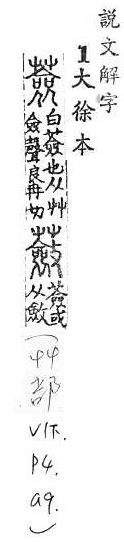 說文解字
1大徐本
薟白薟也从艸僉聲良冉切蘞薟或从斂(艸部 V1下. P4. a9.)